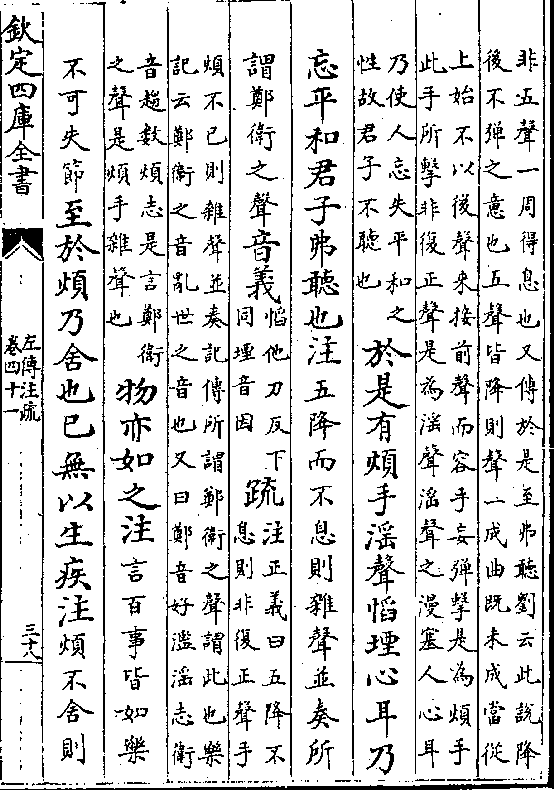 非五聲一周得息也又傳於是至弗聽劉云此說降
後不彈之意也五聲皆降則聲一成曲既未成當從
上始不以後聲來接前聲而容手妄彈擊是為煩手
此手所擊非復正聲是為淫聲淫聲之漫塞人心耳
乃使人忘失平和之
性故君子不聽也
於是有煩手淫聲慆堙心耳乃
忘平和君子弗聽也注五降而不息則雜聲並奏所
謂鄭衛之聲音義
慆他刀反下
同堙音因
疏
注正義曰五降不
息則非復正聲手
煩不已則雜聲並奏記傳所謂鄭衛之聲謂此也樂
記云鄭衛之音亂世之音也又曰鄭音好濫淫志衛
音趨數煩志是言鄭衛
之聲是煩手雜聲也
物亦如之注言百事皆如樂
不可失節至於煩乃舍也已無以生疾注煩不舍則
欽定四庫全書
左傳注疏
卷四十一
三十八